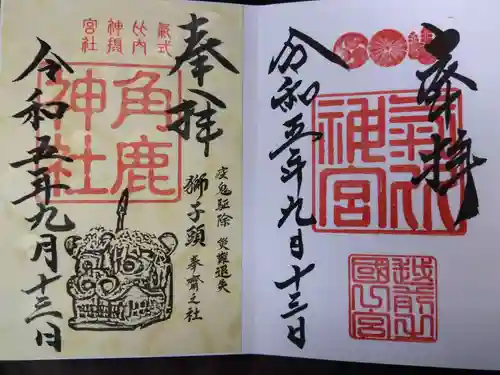 奉拝
氣比神宮
式内摂社
角鹿
神社
疫鬼駆除 災難退失
獅子頭 奉齋之社
令和五年九月十三日
奉拝
氣比
神宮
越前之
國一宮
令和五年九月十三日